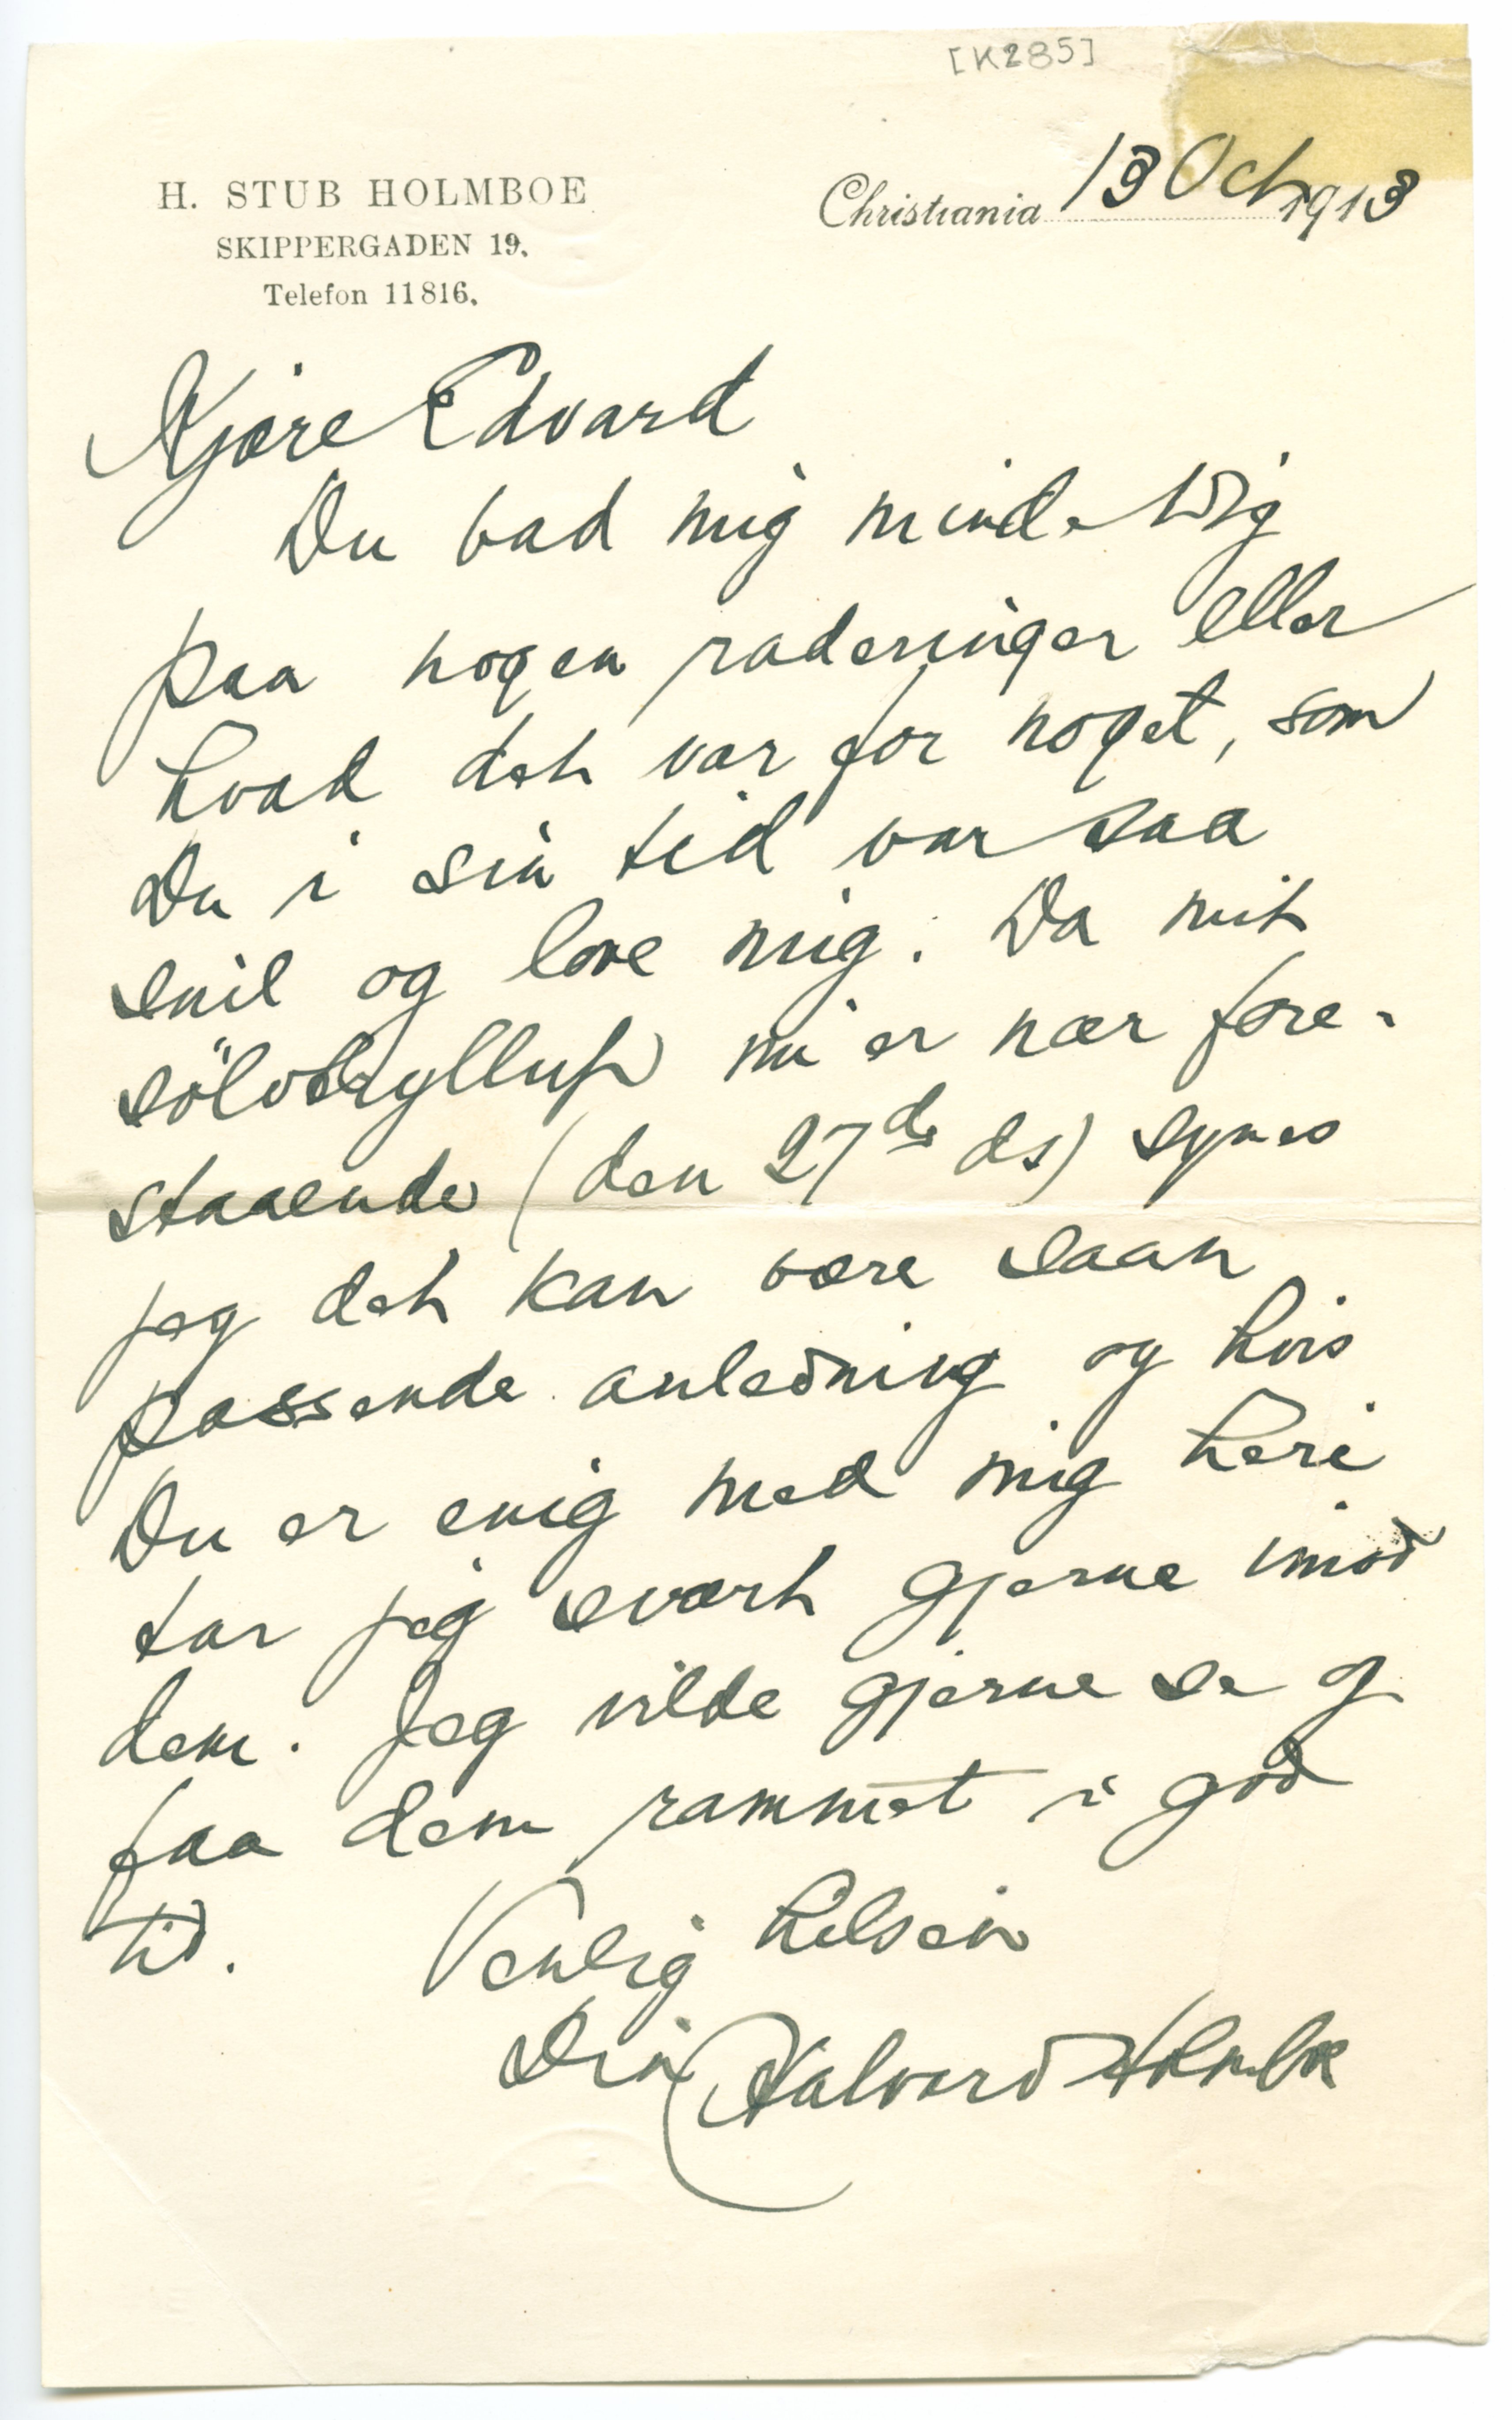 [K285]
H. STUB HOLMBOE
SKIPPERGADEN 19.
Telefon 11816.
Christiania 13 Oct 1913
Kjære Edvard
Du bad mig minde Dig
paa nogen raderinger eller
hvad det var for noget, som
Du i sin tid var saa
snil og love mig. Da mit
sölvbryllup nu er nær fore-
staaende (den 27de ds) synes
jeg det kan være saan
passende anledning og hvis
Du er enig med mig heri
tar jeg svært gjerne imod
dem. Jeg vilde gjerne se og
faa dem rammet i god
tid.
Venlig hilsen
Din Halvard Holmboe